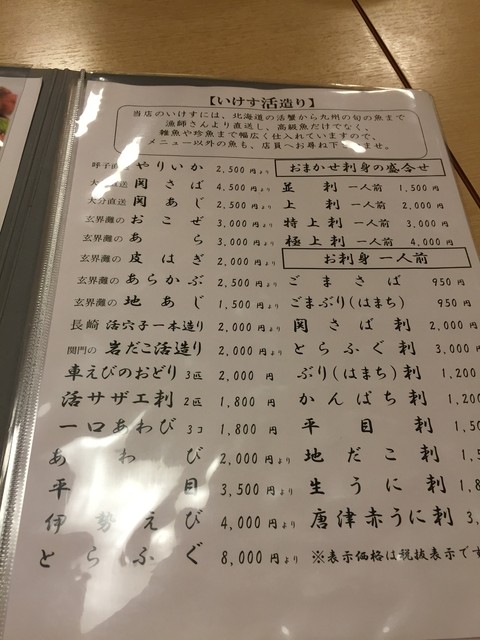 【いけす活造り】
当店のいけすには、北海道の活蟹から九州の旬の魚まで
漁師さんより直送し、高級魚だけでなく、
雑魚や珍魚まで幅広く仕入れていますので、
メニュー以外の魚も、店員へお尋ね下さいませ。
呼子直送 やりいか 2,500円より
大分直送 関さば 4,500円より
大分直送 関あじ 2,500円より
玄界灘の おこぜ 3,000円より
玄界灘の あら 3,000円より
玄界灘の 皮はぎ 2,000円より
玄界灘の あらかぶ 2,500円より
玄界灘の 地あじ 1,500円より
長崎 活穴子一本造り 2,000円より
関門の 岩だこ活造り 2,000円より
車えびのおどり 3匹 2,000円
活サザエ刺 2匹 1,800円
一口あわび 3コ 1,800円
あわび 2,000円より
平目 3,500円より
伊勢えび 4,000円より
とらふぐ 8,000円より
おまかせ刺身の盛合せ
並刺 一人前 1,500円
上刺 一人前 2,000円
特上刺 一人前 3,000円
極上刺 一人前 4,000円
お刺身 一人前
ごまさば 950円
ごまぶり(はまち) 950円
関さば刺 2,000円
とらふぐ刺 3,000円
ぶり(はまち)刺 1,200
かんぱち刺 1,200
平目刺 1,50
地だこ刺 1,5
生うに刺 1,8
唐津赤うに刺 3,
※表示価格は税抜表示です